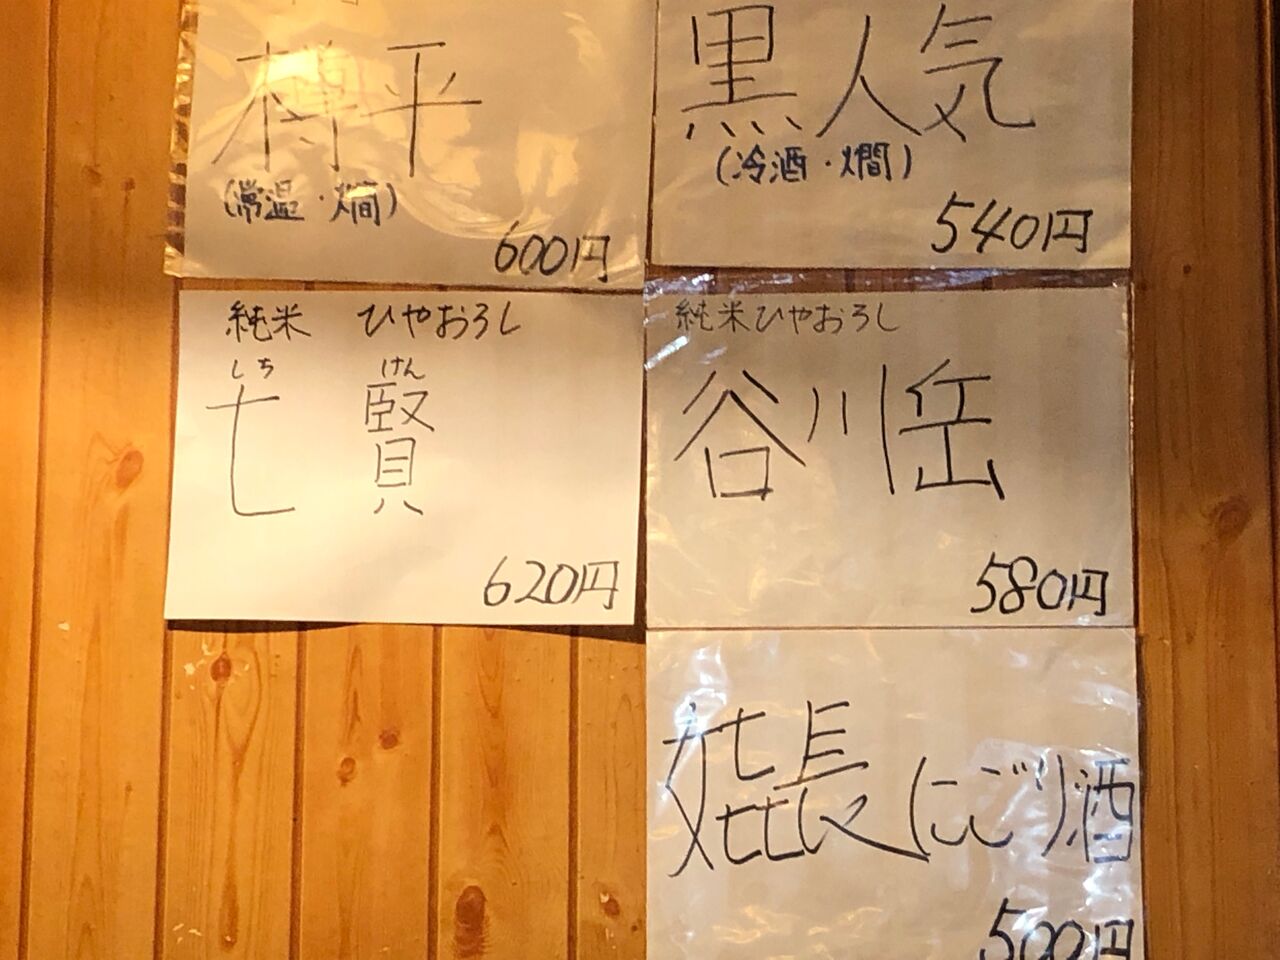 樽平
(常温・燗)
600円
黒人気
(冷酒・燗)
540円
純米 ひやおろし
しち けん
七賢
620円
純米ひやおろし
谷川岳
580円
嬥長にごり酒
500円